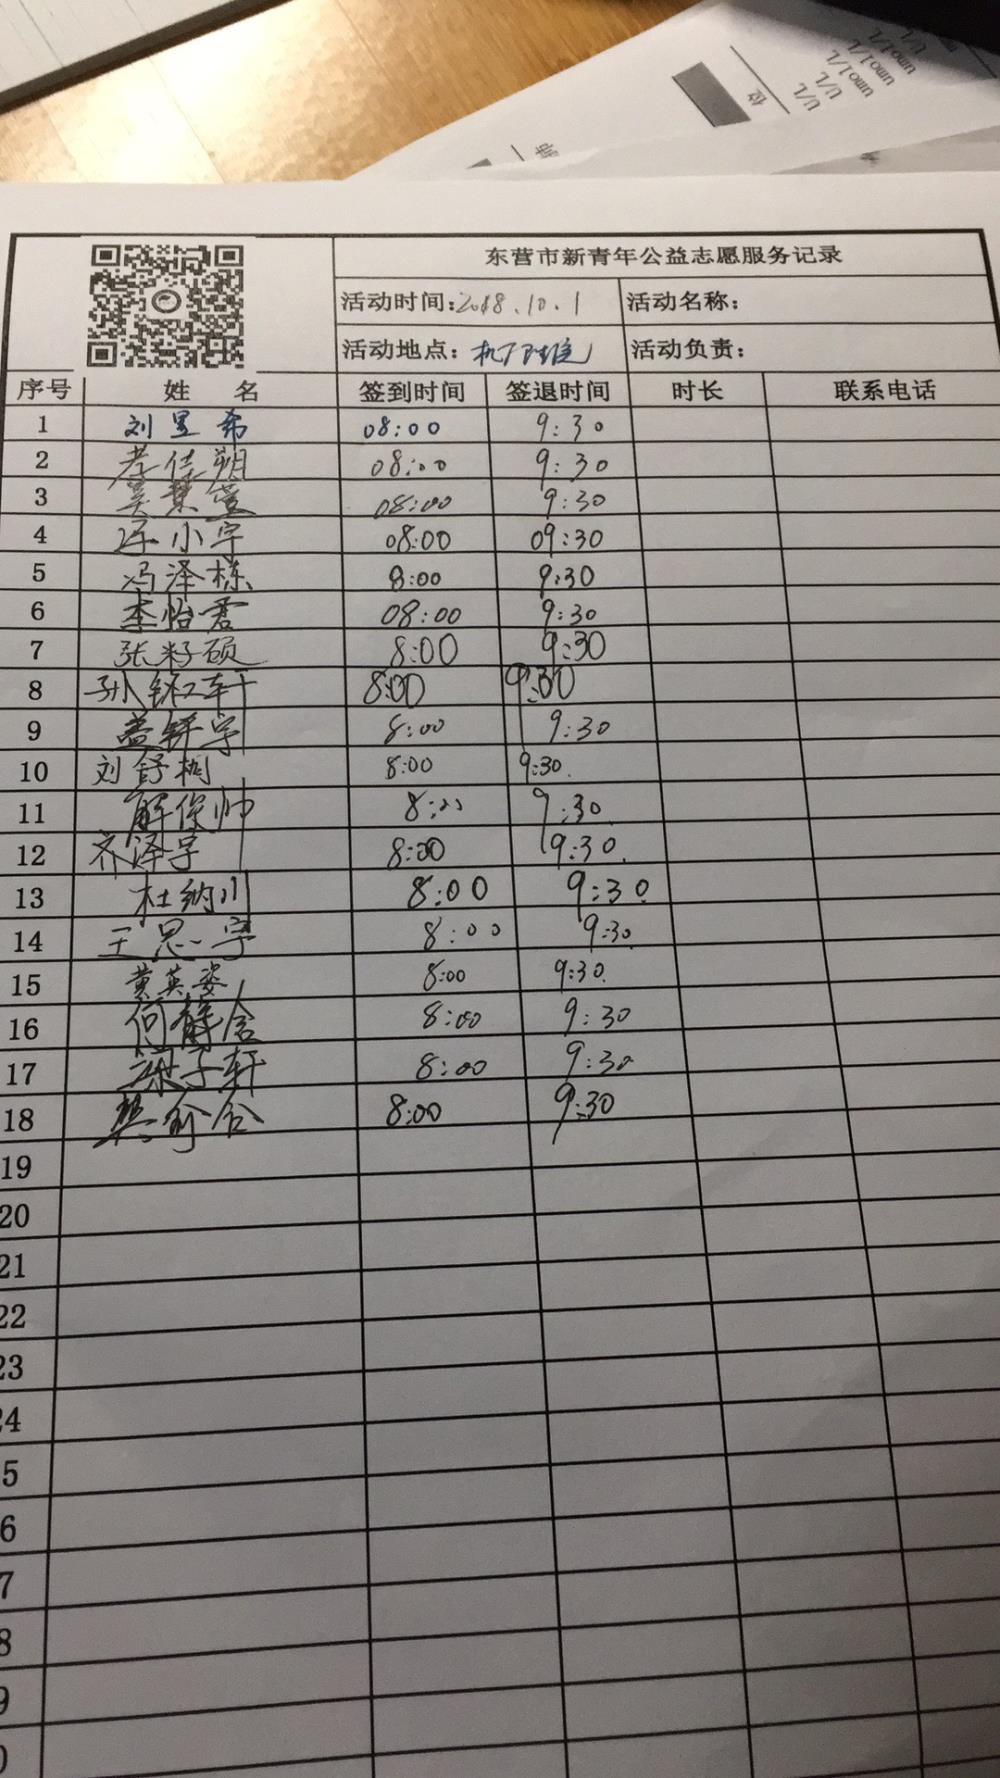 位
U/L
U/L
umol/L
umol/L
umol/L
东营市新青年公益志愿服务记录
活动时间:2018.10.1 活动名称:
活动地点: 活动负责:
序号 姓 名 签到时间 签退时间 时长 联系电话
1 刘昱希 08:00 9:30
2 李佳朔 08:00 9:30
3 08:00 9:30
4 小宇 08:00 09:30
5 冯泽栋 8:00 9:30
6 李怡君 08:00 9:30
7 张籽硕 8:00 9:30
8 孙 轩 8:00 9:30
9 盖 宇 8:00 9:30
10 刘舒桐 8:00 9:30.
11 解保帅 8:00 9:30.
12 齐泽宇 8:00 9:30.
13 杜纳川 8:00 9:30.
14 王思宇 8:00 9:30.
15 黄英姿 8:00 9:30.
16 何静含 8:00 9:30
17 梁子轩 8:00 9:30.
18 8:00 9:30
19
20
21
22
23
24
5
6
7
8
9
0